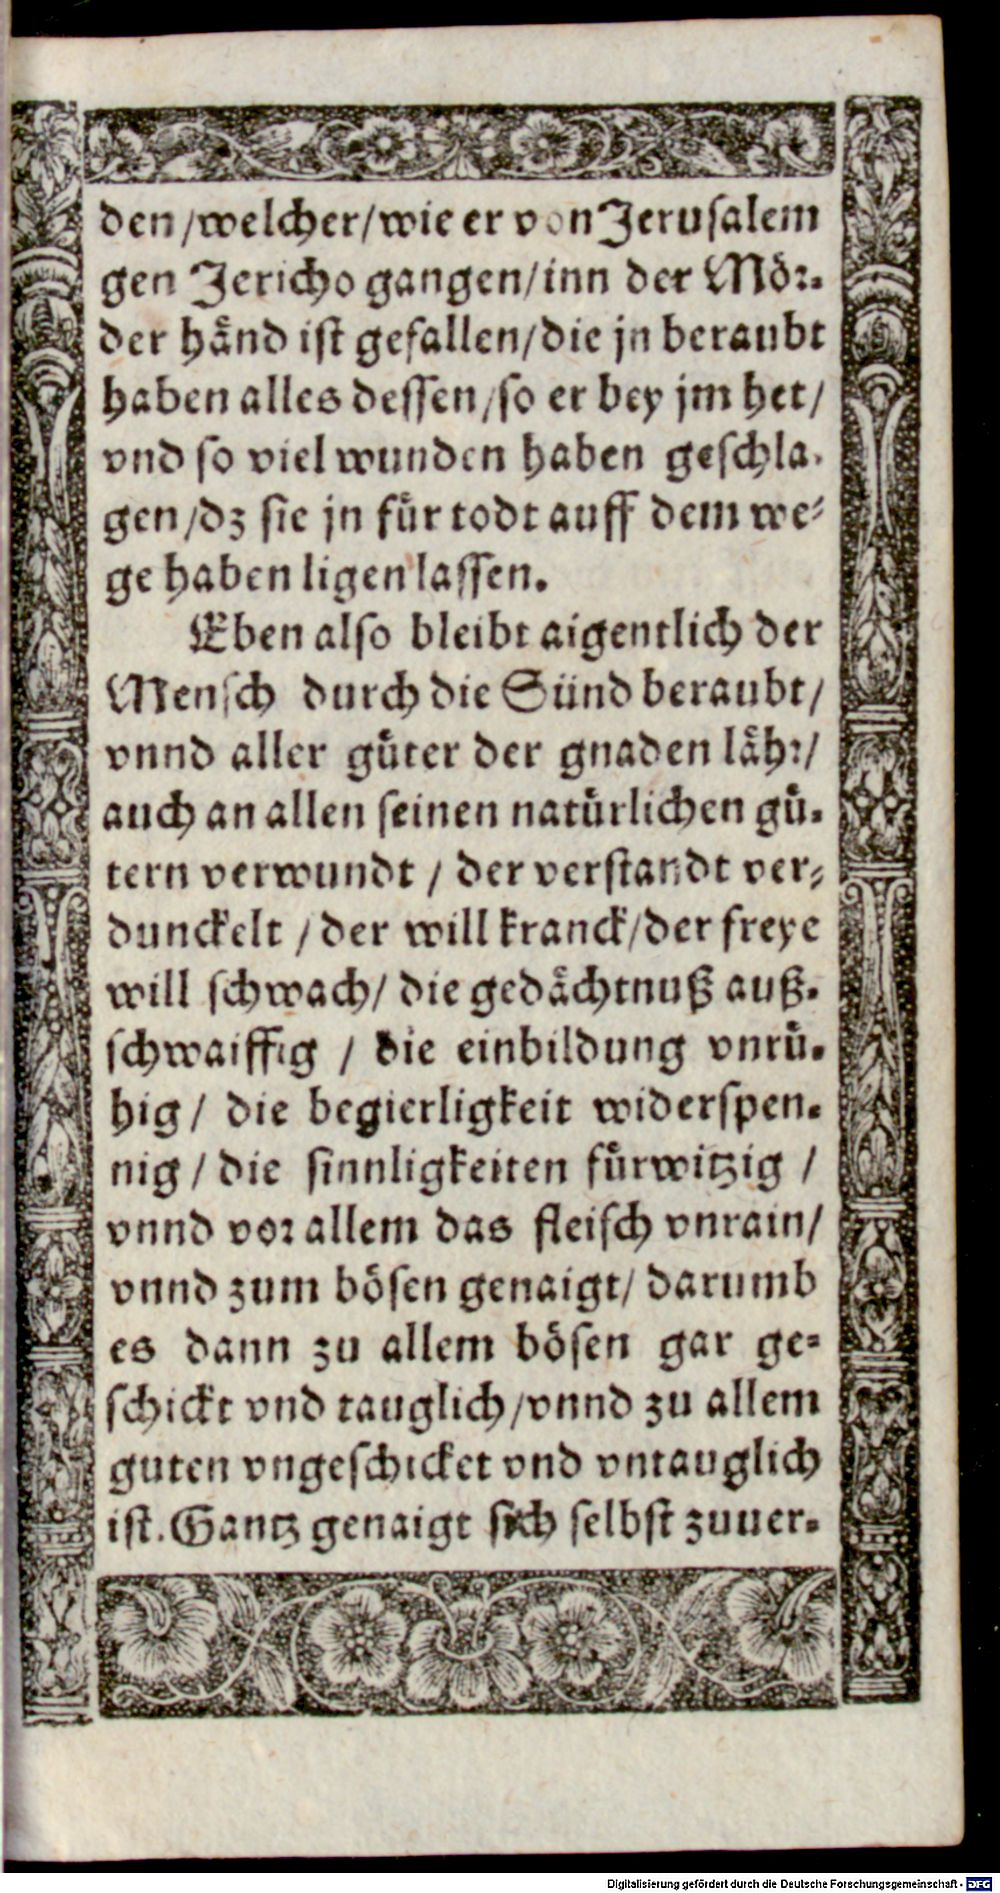 den/welcher/wie er von Jerusalem
gen Jericho gangen/inn der Mör-
der hånd ist gefallen/die jn beraubt
haben alles dessen/so er bey jm het/
vnd so viel wunden haben geschla-
gen/dz sie jn für todt auff dem we-
ge haben ligen lassen.
Eben also bleibt aigentlich der
Mensch durch die Sünd beraubt/
vnnd aller gůter der gnaden låhr/
auch an allen seinen natürlichen gů-
tern verwundt / der verstandt ver-
dunckelt / der will kranck/der freye
will schwach/ die gedåchtnuß auß-
schwaiffig / die einbildung vnrů-
hig/ die begierligkeit widerspen-
nig/ die sinnligkeiten fürwitzig /
vnnd vor allem das fleisch vnrain/
vnnd zum bösen genaigt/ darumb
es dann zu allem bösen gar ge-
schickt vnd tauglich/vnnd zu allem
guten vngeschicket vnd vntauglich
ist. Gantz genaigt sich selbst zuuer-
Digitalisierung gefördert durch die Deutsche Forschungsgemeinschaft - DFG